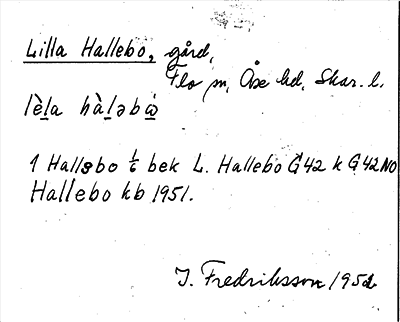 Lilla Hallebo, gård,
Flo sn, Åse hd, Skar. l.
lèla hàləbὼ
1 Hallebo 1/6 bek L. Hallebo G42 k G42NO
Hallebo kb 1951.
I. Fredriksson 1952